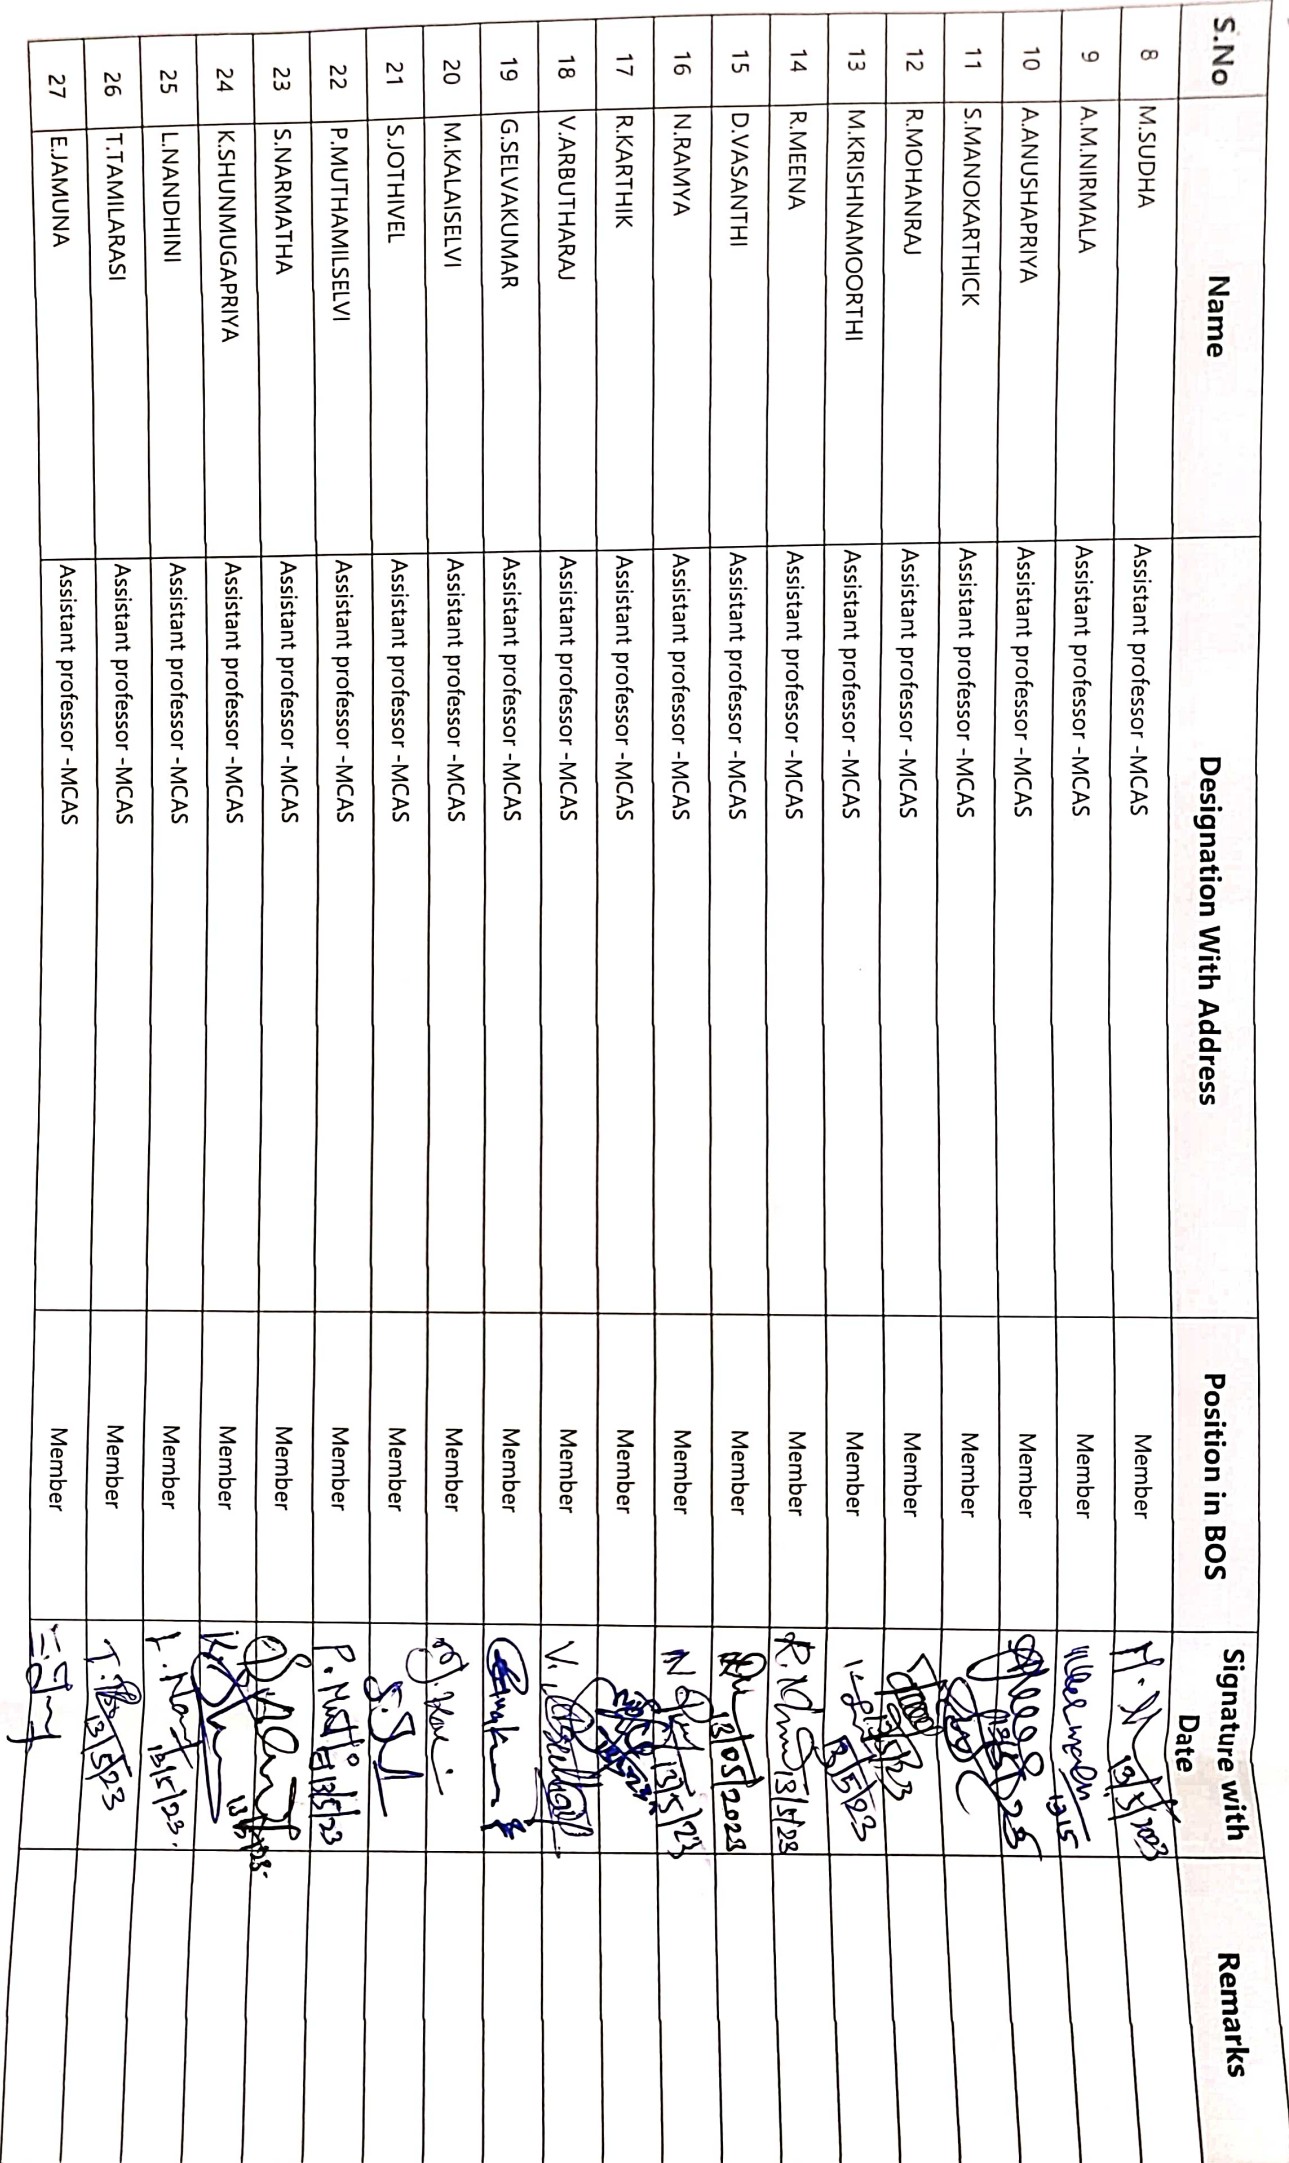 S.No Name Designation With Address Position in BOS Signature with Date Remarks
8 M.SUDHA Assistant professor -MCAS Member 13/5/2023
9 A.M.NIRMALA Assistant professor -MCAS Member 13/5
10 A.ANUSHAPRIYA Assistant professor -MCAS Member
11 S.MANOKARTHICK Assistant professor -MCAS Member
12 R.MOHANRAJ Assistant professor -MCAS Member
13 M.KRISHNAMOORTHI Assistant professor -MCAS Member 13/5/23
14 R.MEENA Assistant professor -MCAS Member 13/5/23
15 D.VASANTHI Assistant professor -MCAS Member 13/05/2023
16 N.RAMYA Assistant professor -MCAS Member 13/5/23
17 R.KARTHIK Assistant professor -MCAS Member
18 V.ARBUTHARAJ Assistant professor -MCAS Member
19 G.SELVAKUMAR Assistant professor -MCAS Member
20 M.KALAISELVI Assistant professor -MCAS Member
21 S.JOTHIVEL Assistant professor -MCAS Member
22 P.MUTHAMILSELVI Assistant professor -MCAS Member 13/5/23
23 S.NARMATHA Assistant professor -MCAS Member
24 K.SHUNMUGAPRIYA Assistant professor -MCAS Member
25 L.NANDHINI Assistant professor -MCAS Member 13/5/23.
26 T.TAMILARASI Assistant professor -MCAS Member 13/5/23
27 E.JAMUNA Assistant professor -MCAS Member